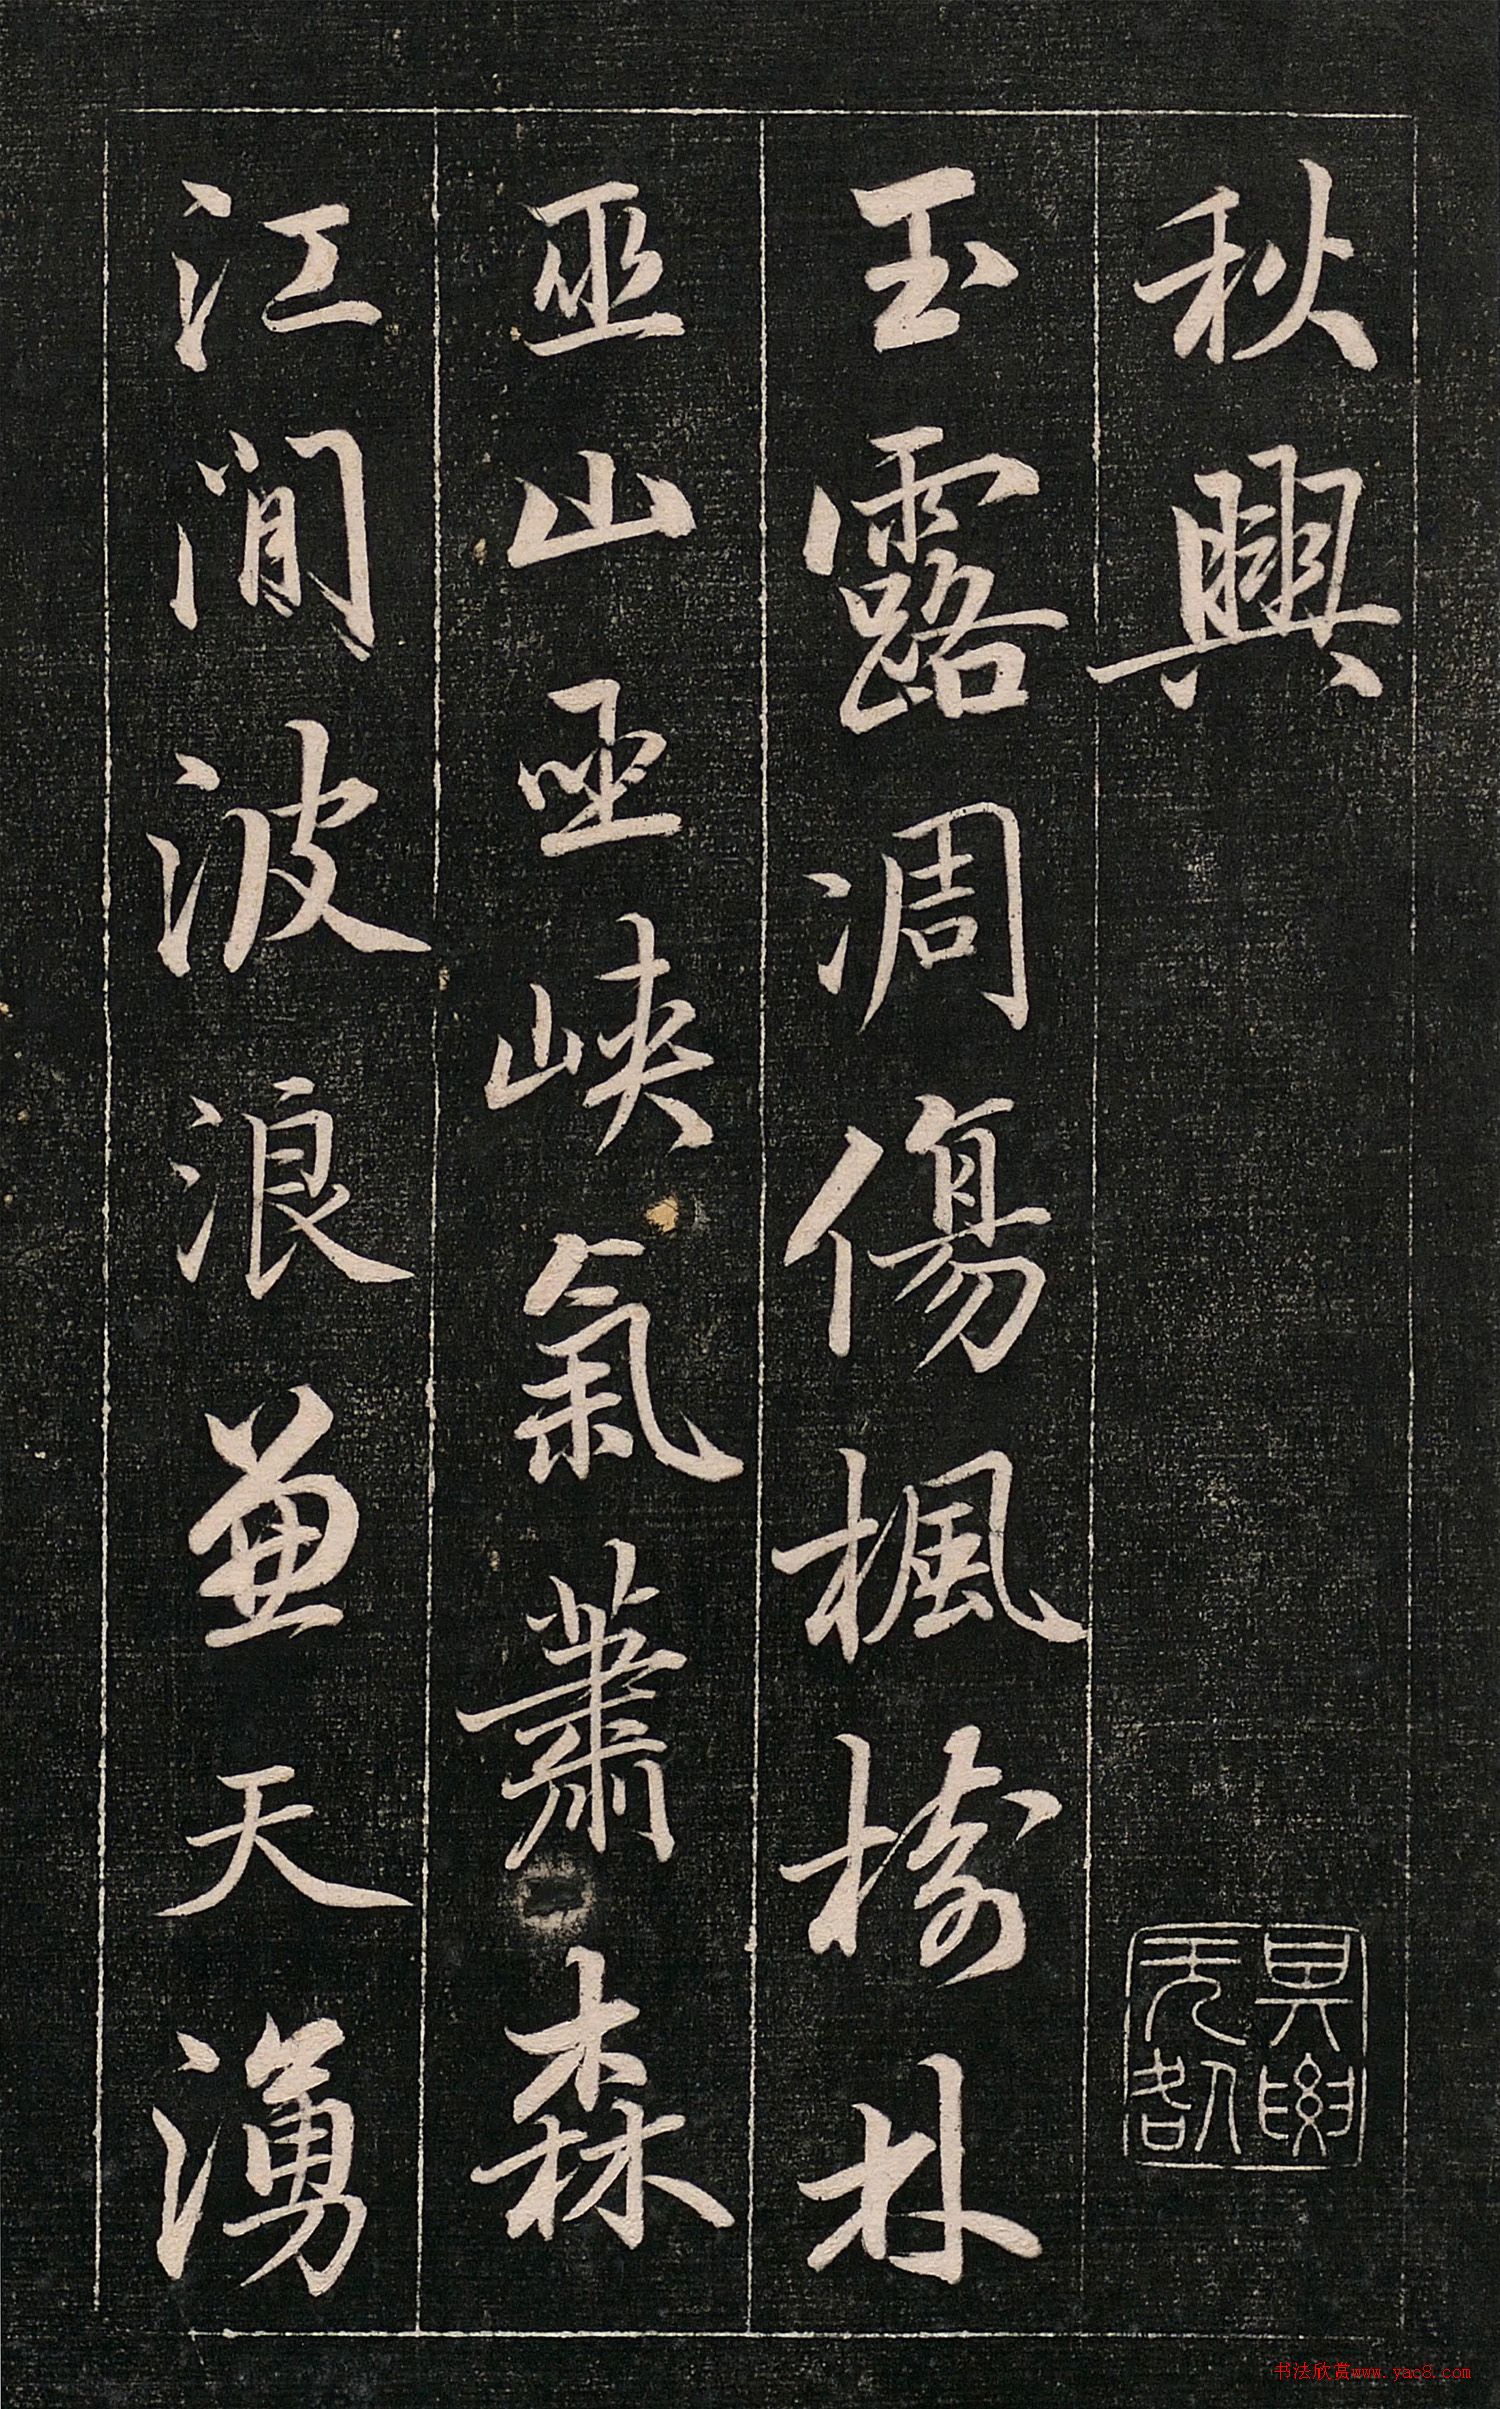 秋興
玉露凋傷楓樹林
巫山巫峽氣蕭森
江閒波浪兼天湧
书法欣赏www.yac8.com